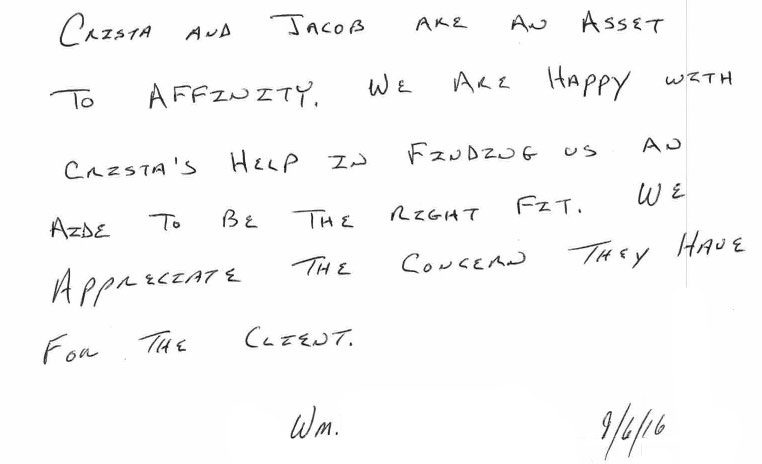 Crista and Jacob are an Asset
To Affinity. We Are Happy with
Crista's Help in Finding us an
Aide To Be The Right Fit. We
Appreciate The Concern They Have
For The Client.
Wm. 9/6/16